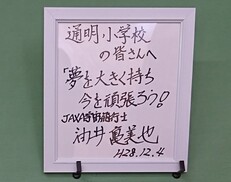 通明小学校
の皆さんへ
「夢を大きく持ち
今を頑張ろう!」
JAXA宇宙飛行士
油井亀美也
H28.12.4